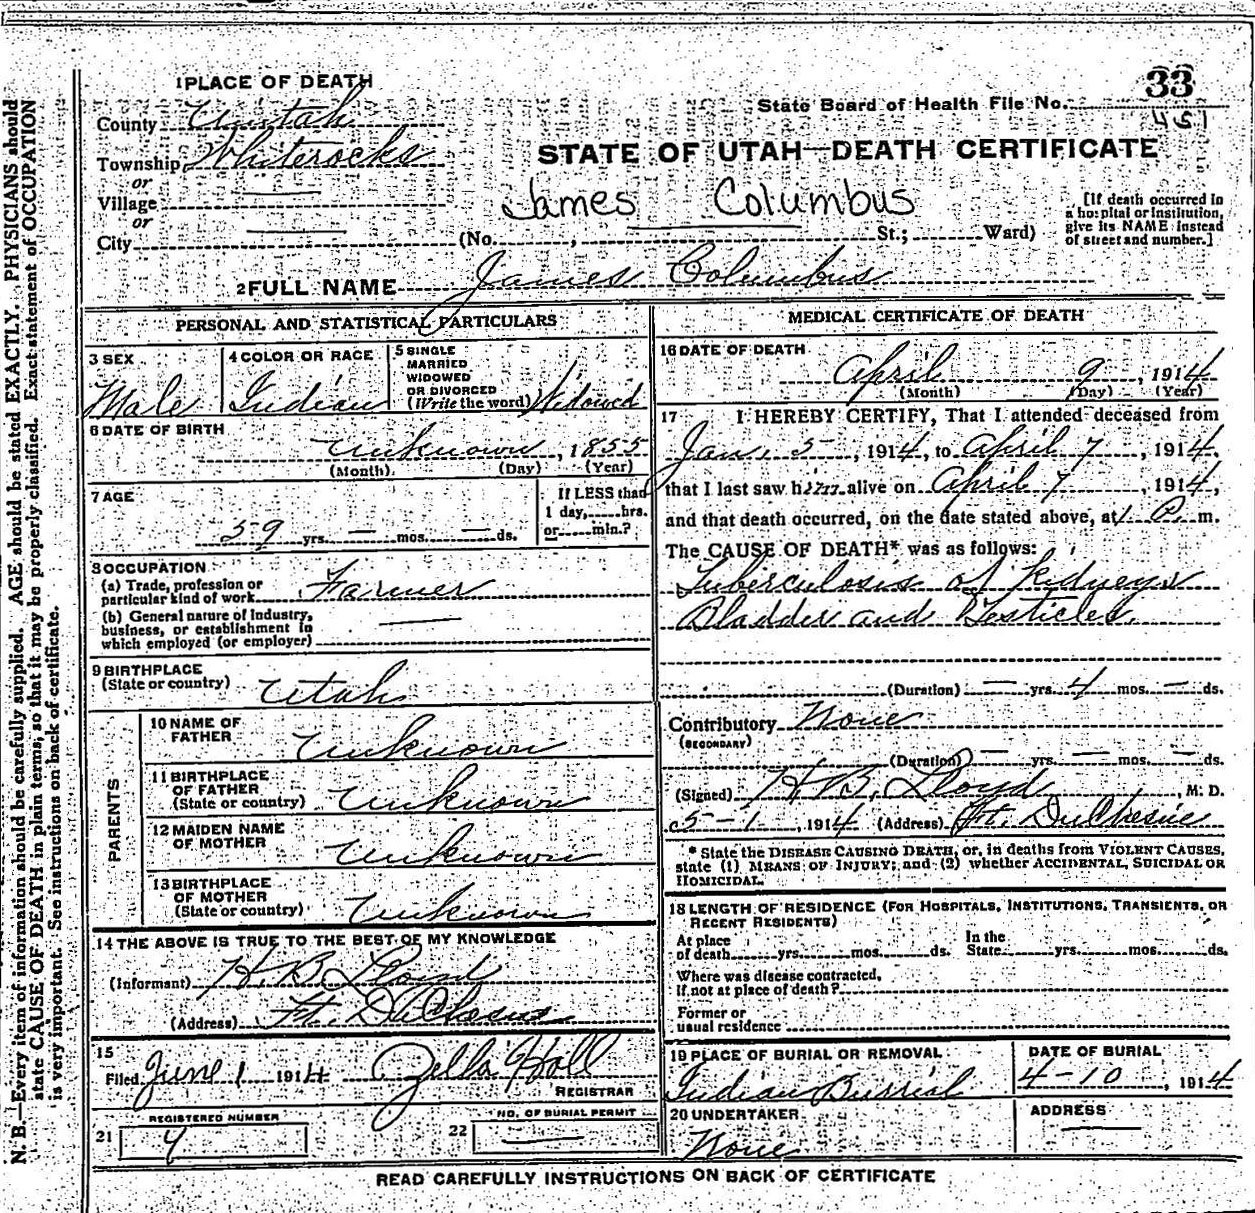 1 PLACE OF DEATH
33
State Board of Health File No.
451
County Uintah
Township Whiterocks
or
Village
or
City
STATE OF UTAH—DEATH CERTIFICATE
James Columbus
(No. , St.; Ward)
[If death occurred in
a hospital or institution,
give its NAME instead
of street and number.]
2 FULL NAME James Columbus
PERSONAL AND STATISTICAL PARTICULARS
3 SEX Male
4 COLOR OR RACE Indian
5 SINGLE
MARRIED
WIDOWED
OR DIVORCED
(Write the word) Widowed
6 DATE OF BIRTH
Unknown, 1855
(Month) (Day) (Year)
7 AGE
59 yrs. — mos. — ds.
If LESS than
1 day, hrs.
or min.?
8 OCCUPATION
(a) Trade, profession or
particular kind of work Farmer
(b) General nature of industry,
business, or establishment in
which employed (or employer) —
9 BIRTHPLACE
(State or country) Utah
PARENTS
10 NAME OF
FATHER Unknown
11 BIRTHPLACE
OF FATHER
(State or country) Unknown
12 MAIDEN NAME
OF MOTHER Unknown
13 BIRTHPLACE
OF MOTHER
(State or country) Unknown
14 THE ABOVE IS TRUE TO THE BEST OF MY KNOWLEDGE
(Informant) H. B. Lloyd
(Address) Ft. DuChesne
15
Filed June 1 1914 Zella Hall
REGISTRAR
REGISTERED NUMBER
21 4
NO. OF BURIAL PERMIT
22 —
MEDICAL CERTIFICATE OF DEATH
16 DATE OF DEATH
April 9, 1914
(Month) (Day) (Year)
17 I HEREBY CERTIFY, That I attended deceased from
Jan. 5, 1914, to April 7, 1914,
that I last saw him alive on April 7, 1914,
and that death occurred, on the date stated above, at 1 P m.
The CAUSE OF DEATH* was as follows:
Tuberculosis of Kidneys
Bladder and Testicles.
(Duration) — yrs. 4 mos. — ds.
Contributory None
(SECONDARY)
(Duration) — yrs. — mos. — ds.
(Signed) H. B. Lloyd, M. D.
5-1, 1914 (Address) Ft. DuChesne
* State the DISEASE CAUSING DEATH, or, in deaths from VIOLENT CAUSES,
state (1) MEANS OF INJURY; and (2) whether ACCIDENTAL, SUICIDAL OR
HOMICIDAL.
18 LENGTH OF RESIDENCE (FOR HOSPITALS, INSTITUTIONS, TRANSIENTS, OR
RECENT RESIDENTS)
At place
of death yrs. mos. ds. In the
State yrs. mos. ds.
Where was disease contracted,
if not at place of death?
Former or
usual residence
19 PLACE OF BURIAL OR REMOVAL
Indian Burrial
DATE OF BURIAL
4-10, 1914
20 UNDERTAKER
None
ADDRESS
—
READ CAREFULLY INSTRUCTIONS ON BACK OF CERTIFICATE
N. B.—Every item of information should be carefully supplied. AGE should be stated EXACTLY. PHYSICIANS should
state CAUSE OF DEATH in plain terms, so that it may be properly classified. Exact statement of OCCUPATION
is very important. See instructions on back of certificate.